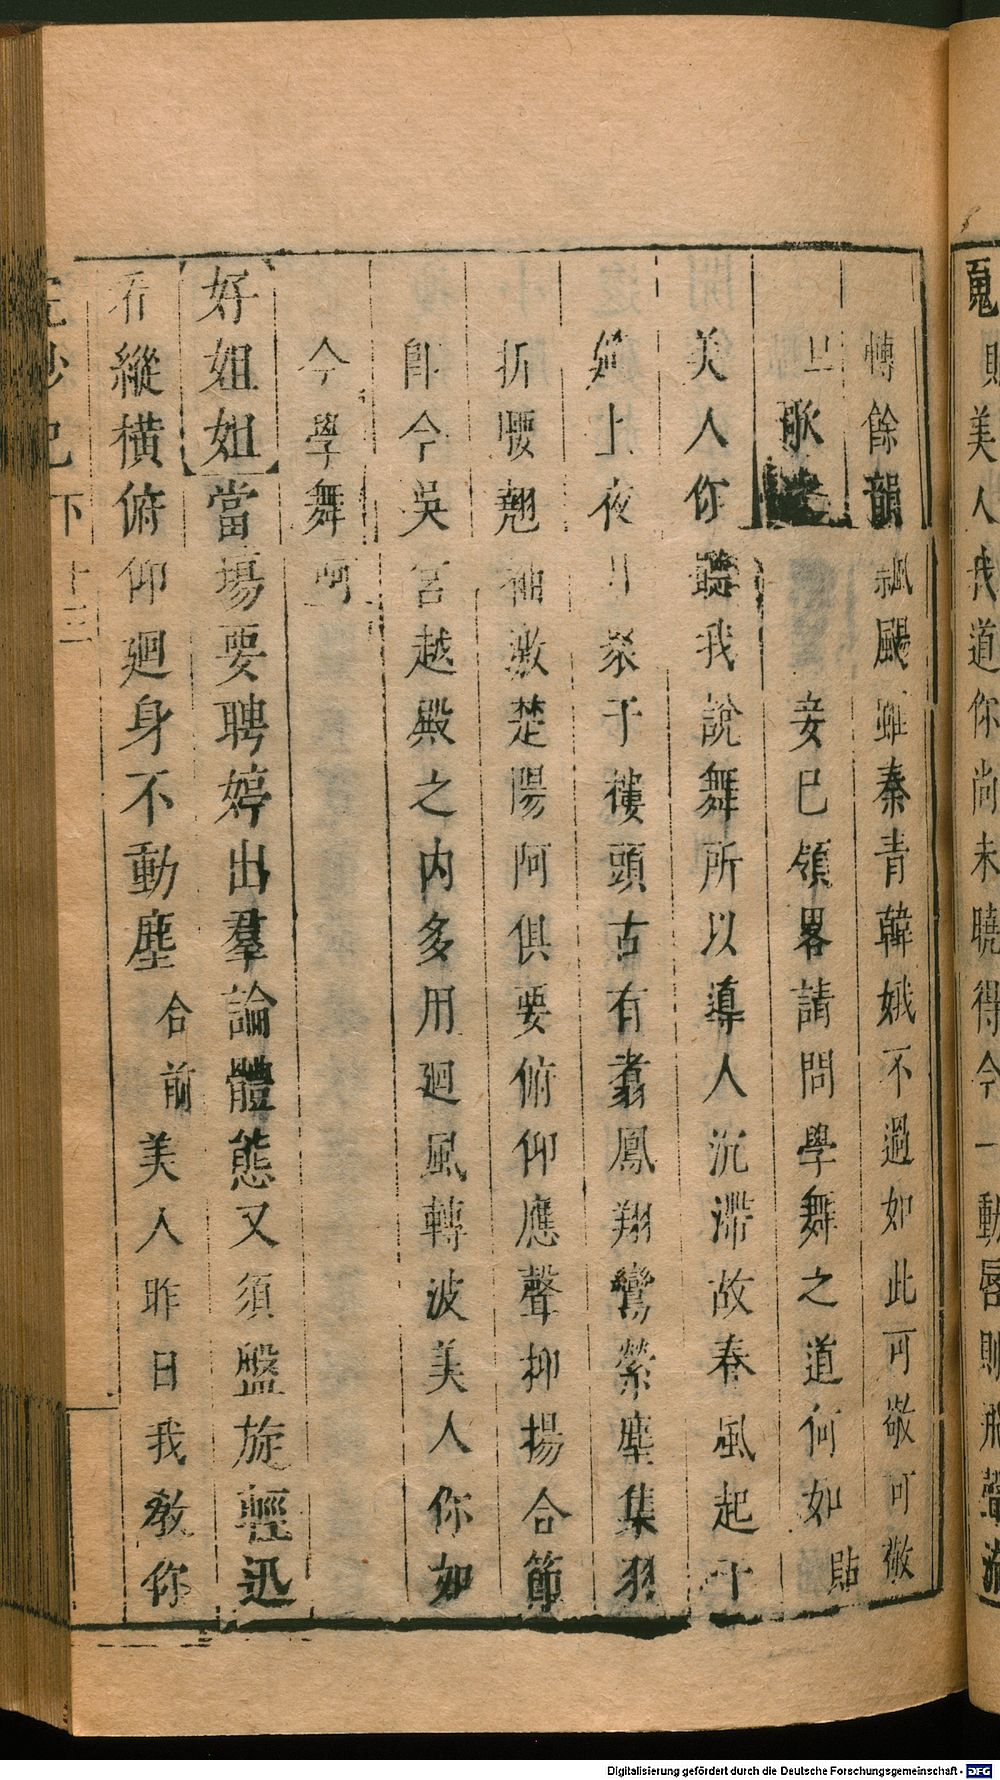 則美人我道你尚未曉得今一動唇則飛聲流
轉餘韻飄颺雖秦青韓娥不過如此可敬可敬
旦歌 妾已領畧請問學舞之道何如貼
美人你聽我說舞所以導人沉滯故春風起于
上夜月察于樓頭古有翥鳳翔鸞縈塵集羽
折腰翹袖激楚陽阿俱要俯仰應聲抑揚合節
卽今吳宮越殿之內多用廻風轉波美人你如
今學舞呵
好姐姐當場要聘婷出羣論體態又須盤旋輕迅
看縱橫俯仰廻身不動塵合前美人昨日我教你
浣紗記 下 十三
Digitalisierung gefördert durch die Deutsche Forschungsgemeinschaft - DFG